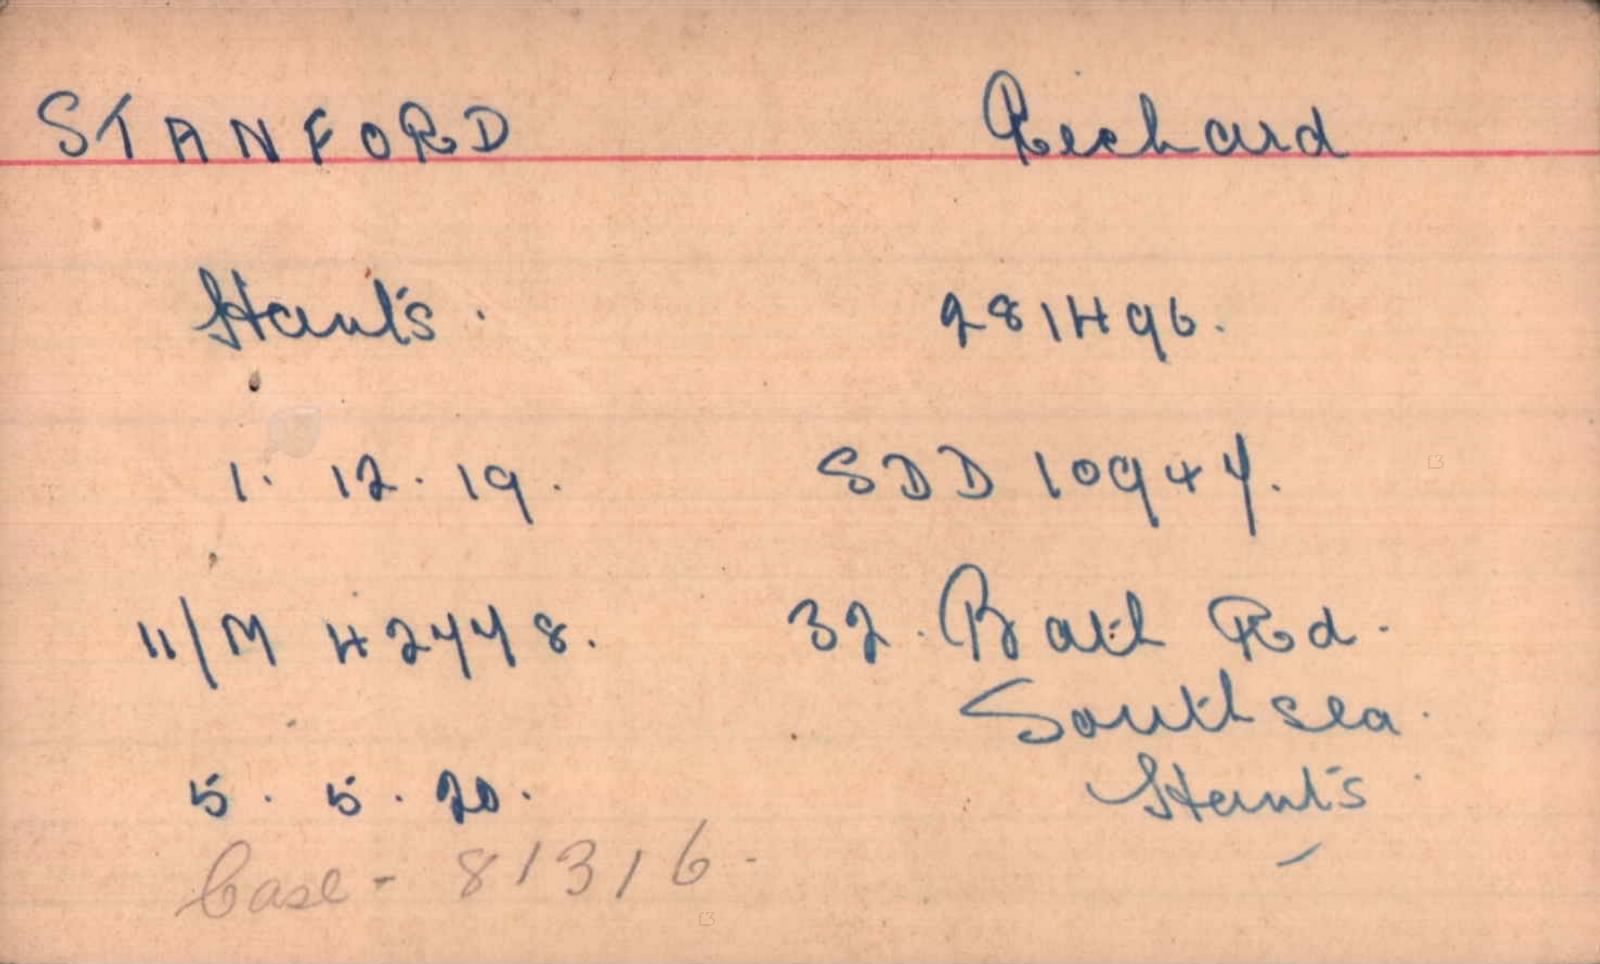 STANFORD Richard
Hants. 281496.
1. 12. 19. SDD 10947.
11/M 42778. 32. Bath Rd.
Southsea.
5. 5. 20. Hants
Case - 81316.